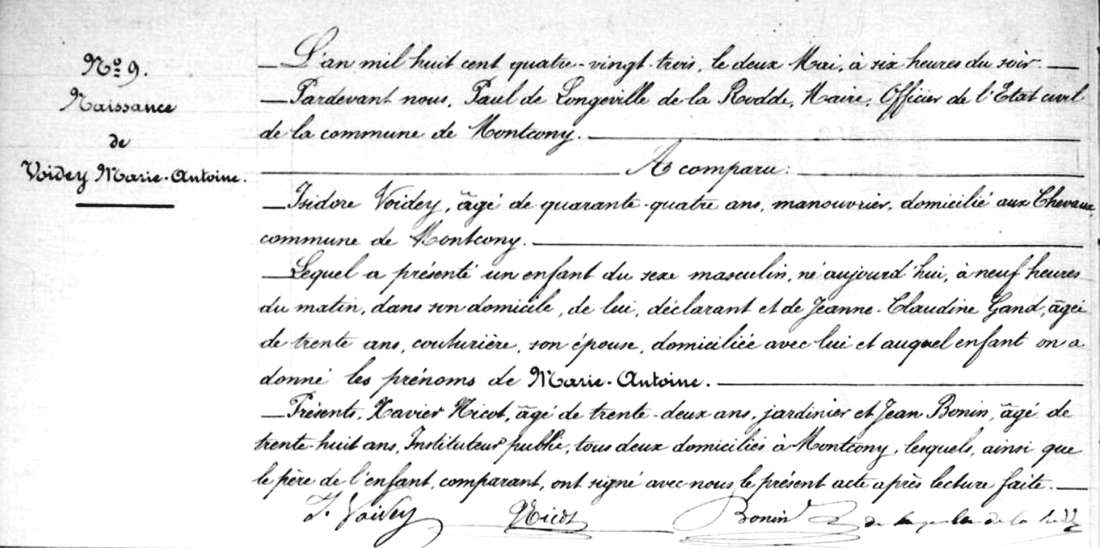 Nº 9.
Naissance
de
Voidey Marie-Antoine.
L'an mil huit cent quatre-vingt-trois, le deux Mai, à six heures du soir
Pardevant nous, Paul de Longeville de la Rodde, Maire, Officier de l'Etat civil
de la commune de Montcony.
A comparu:
Isidore Voidey, âgé de quarante-quatre ans, manouvrier, domicilié aux Chevaux,
commune de Montcony.
Lequel a présenté un enfant du sexe masculin, né aujourd'hui, à neuf heures
du matin, dans son domicile, de lui, déclarant et de Jeanne-Claudine Gand, âgée
de trente ans, couturière, son épouse, domiciliée avec lui et auquel enfant on a
donné les prénoms de Marie-Antoine.
Présents, Xavier Nicot, âgé de trente-deux ans, jardinier et Jean Bonin, âgé de
trente huit ans, Instituteur public, tous deux domiciliés à Montcony, lesquels, ainsi que
le père de l'enfant, comparant, ont signé avec nous le présent acte après lecture faite.
I. Voidey Nicot Bonin de la